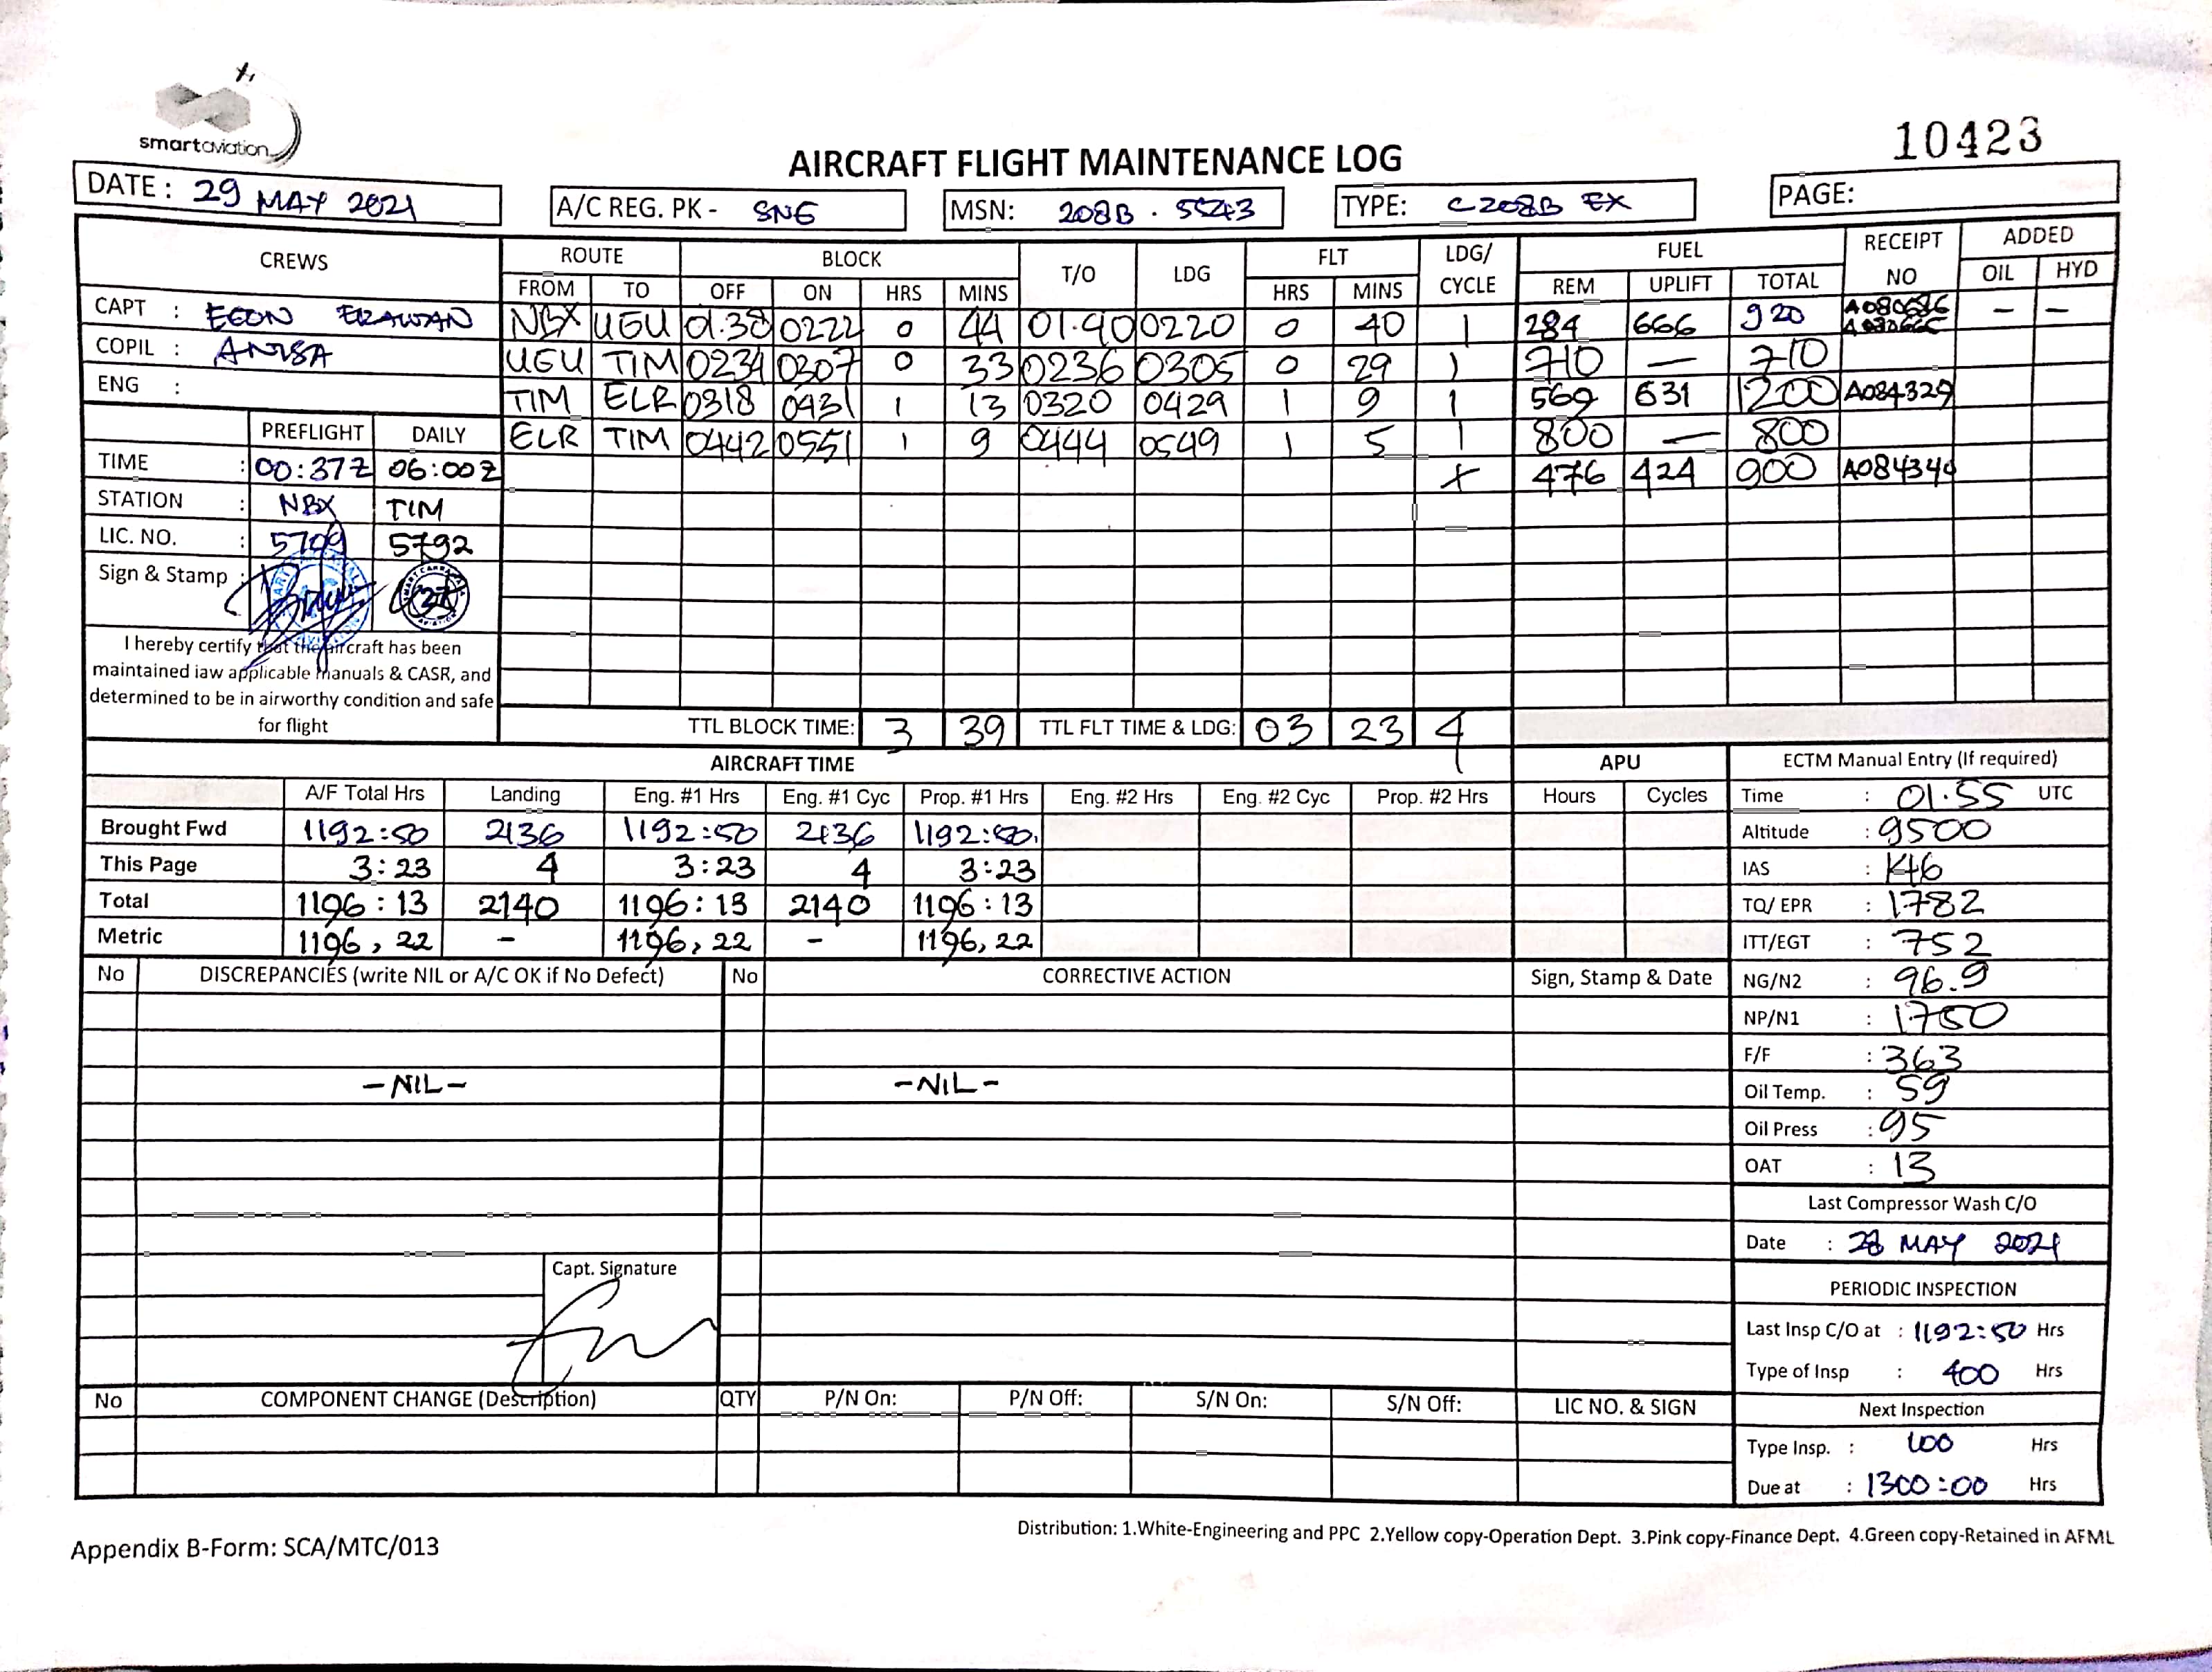 smartaviation
10423
AIRCRAFT FLIGHT MAINTENANCE LOG
DATE : 29 MAY 2021
A/C REG. PK - SNG
MSN: 208B . 5543
TYPE: C208B EX
PAGE:
CREWS ROUTE BLOCK T/O LDG FLT LDG/ CYCLE FUEL RECEIPT NO ADDED
FROM TO OFF ON HRS MINS HRS MINS REM UPLIFT TOTAL OIL HYD
CAPT : EGON ERAWAN NBX UGU 01.38 0222 0 44 01.40 0220 0 40 1 284 666 920 — —
COPIL : ANISA UGU TIM 0234 0307 0 33 0236 0305 0 29 1 710 — 710
ENG : TIM ELR 0318 0431 1 13 0320 0429 1 9 1 569 631 1200 A084329
PREFLIGHT DAILY ELR TIM 0442 0551 1 9 0444 0549 1 5 1 800 — 800
TIME : 00:37Z 06:00Z 476 424 900 A084340
STATION : NBX TIM
LIC. NO. : 5709 5792
Sign & Stamp :
I hereby certify that the aircraft has been
maintained iaw applicable manuals & CASR, and
determined to be in airworthy condition and safe
for flight
TTL BLOCK TIME: 3 39 TTL FLT TIME & LDG: 03 23 4
AIRCRAFT TIME APU ECTM Manual Entry (If required)
A/F Total Hrs Landing Eng. #1 Hrs Eng. #1 Cyc Prop. #1 Hrs Eng. #2 Hrs Eng. #2 Cyc Prop. #2 Hrs Hours Cycles Time : 01.55 UTC
Brought Fwd 1192:50 2136 1192:50 2136 1192:50. Altitude : 9500
This Page 3:23 4 3:23 4 3:23 IAS : 146
Total 1196:13 2140 1196:13 2140 1196:13 TQ/ EPR : 1782
Metric 1196,22 - 1196,22 - 1196,22 ITT/EGT : 752
No DISCREPANCIES (write NIL or A/C OK if No Defect) No CORRECTIVE ACTION Sign, Stamp & Date NG/N2 : 96.9
NP/N1 : 1750
F/F : 363
-NIL- -NIL- Oil Temp. : 59
Oil Press : 95
OAT : 13
Last Compressor Wash C/O
Date : 28 MAY 2021
Capt. Signature
PERIODIC INSPECTION
Last Insp C/O at : 1192:50 Hrs
Type of Insp : 400 Hrs
No COMPONENT CHANGE (Description) QTY P/N On: P/N Off: S/N On: S/N Off: LIC NO. & SIGN Next Inspection
Type Insp. : 100 Hrs
Due at : 1300:00 Hrs
Appendix B-Form: SCA/MTC/013
Distribution: 1.White-Engineering and PPC 2.Yellow copy-Operation Dept. 3.Pink copy-Finance Dept. 4.Green copy-Retained in AFML